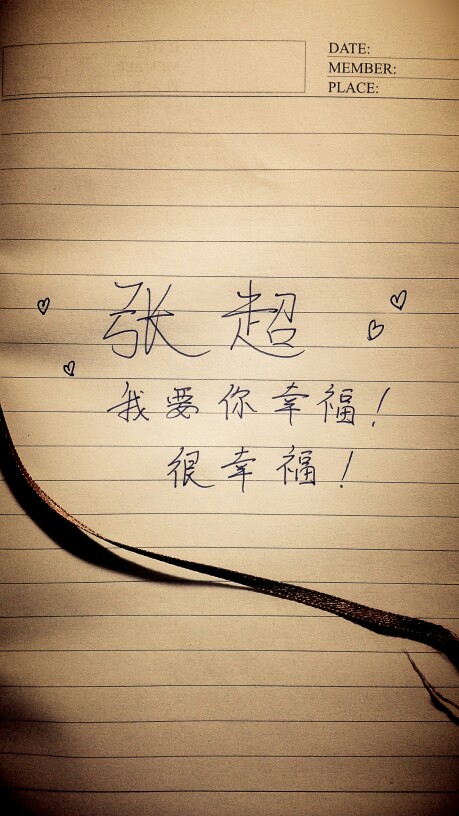 DATE:
MEMBER:
PLACE:
张超
我要你幸福！
很幸福！